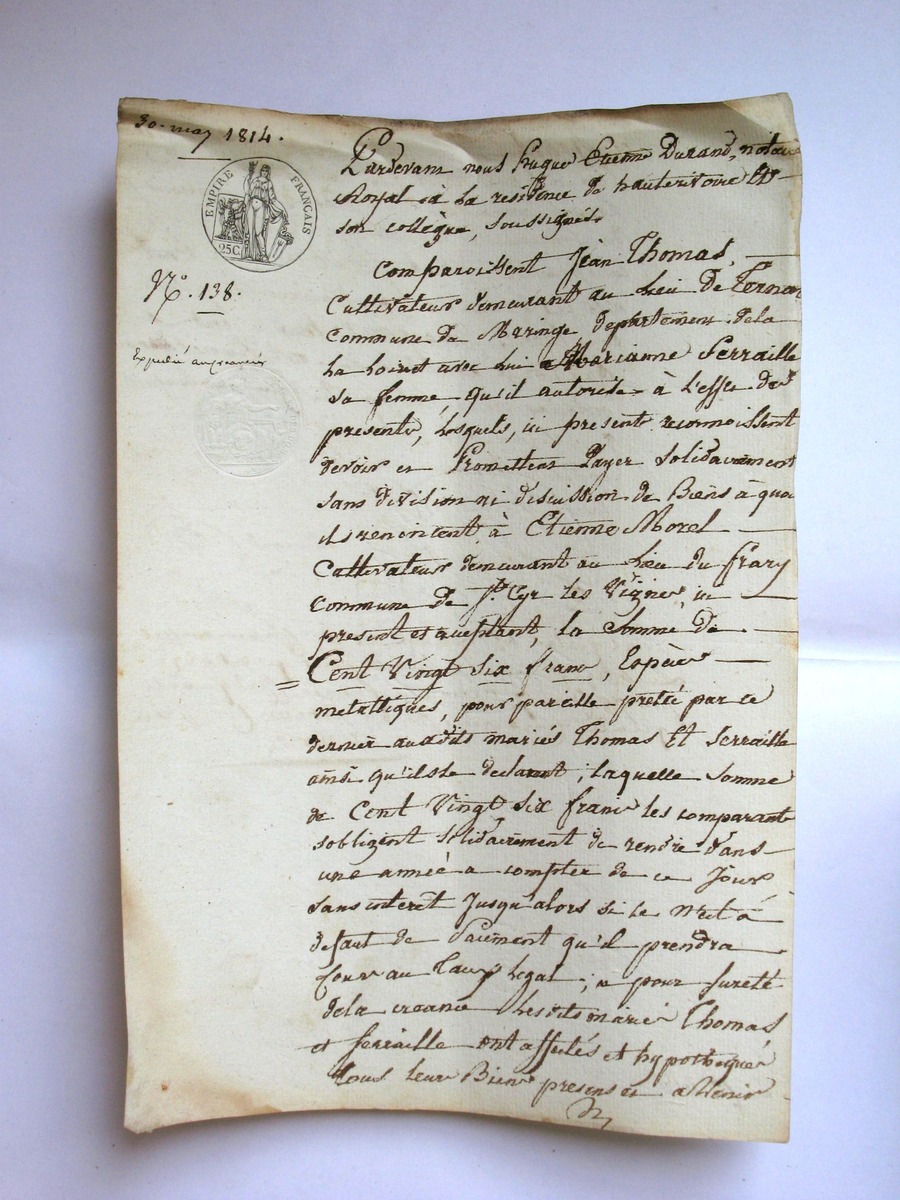 30. may 1814.
EMPIRE FRANÇAIS
25C
N.° 138.
Expedié au creancier
Pardevant nous hugue Etienne Durand, notaire
Royal à La residence de hauterivoire Et
son collègue, soussignés.
Comparoissent Jean Thomas,
Cultivateur demeurant au Lieu de
Commune de Maringe departement de la
La Loire et avec lui Marianne Serraille
sa femme, qu'il autorise à l'effet des
presente, Lesquels, ici present reconnoissent
devoir et Promettent Payer solidairement
sans division ni discussion de Biens à quoi
ils renoncent, à Etienne Morel
Cultivateur demeurant au Lieu du
commune de St. Cyr les Vignes, ici
present et aceptant, la Somme de
Cent Vingt Six franc, Espèces
metalliques, pour pareille prêtté par ce
dernier auxdits mariés Thomas Et Serraille
ainsi qu'ils le declarent; laquelle somme
de Cent Vingt Six franc les comparant
sobligent solidairement de rendre dans
une année a compter de ce Jour
sans interêt Jusqu'alors si ce n'est à
defaut de Paiement qu'il prendra
Cour au Taux Legal; et pour sureté
de la creance Lesdits mariés Thomas
et Serraille ont affectés et hypothequé
Tous leur Biens presens et a Venir